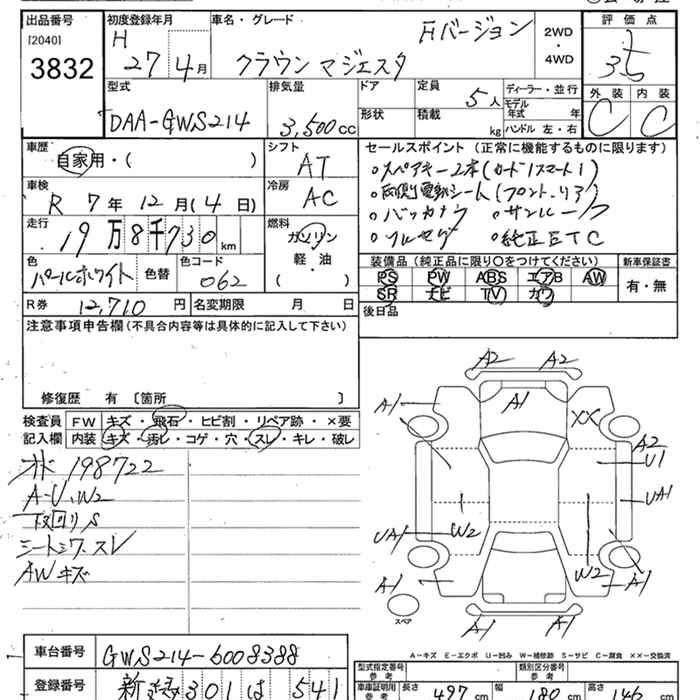 出品番号 初度登録年月 車名・グレード 評価点
[2040] H Fバージョン 2WD
・
4WD
3832 27 4月 クラウン マジェスタ 3.5
外装 内装
型式 排気量 ドア 定員 ディーラー・並行
DAA-GWS214 3,500cc 5人 モデル年式 年 C C
形状 積載 kg ハンドル 左・右
車歴 シフト セールスポイント（正常に機能するものに限ります）
自家用・（ ） AT ・スペアキー2本(カード1スマート1)
車検 冷房 ・両側電動シート(フロント、リア)
R 7年 12月（4日） AC ・バックカメラ ・サンルーフ
走行 燃料 ・フルセグ ・純正ETC
19万8千730km ガソリン
軽・油
（ ）
色 色替 色コード 装備品（純正品に限り○をつけてください） 新車保証書
パールホワイト 062 PS PW ABS エアB AW 有・無
SR ナビ TV カワ
R券 12,710円 名変期限 月 日 後日品
注意事項申告欄（不具合内容等は具体的に記入して下さい）
修復歴 有 〔箇所 〕
検査員 FW キズ・飛石・ヒビ割・リペア跡・×要
記入欄 内装 キズ・汚レ・コゲ・穴・スレ・キレ・破レ
198722
A-U、W2
下回りS
シートシワ、スレ
AWキズ
A2 A2
A1 A1 XX
A2
U1
UA1
W2
UA1 W2
A1 A1
A1 A1
スペア
A－キズ E－エクボ U－凹み W－補修跡 S－サビ C－腐食 XX－交換済
車台番号 GWS214-6008388 型式指定番号 参考 類別区分番号 参考
登録番号 301 は 541 車庫証明用 参考 長さ 497cm 幅 180cm 高さ 146cm